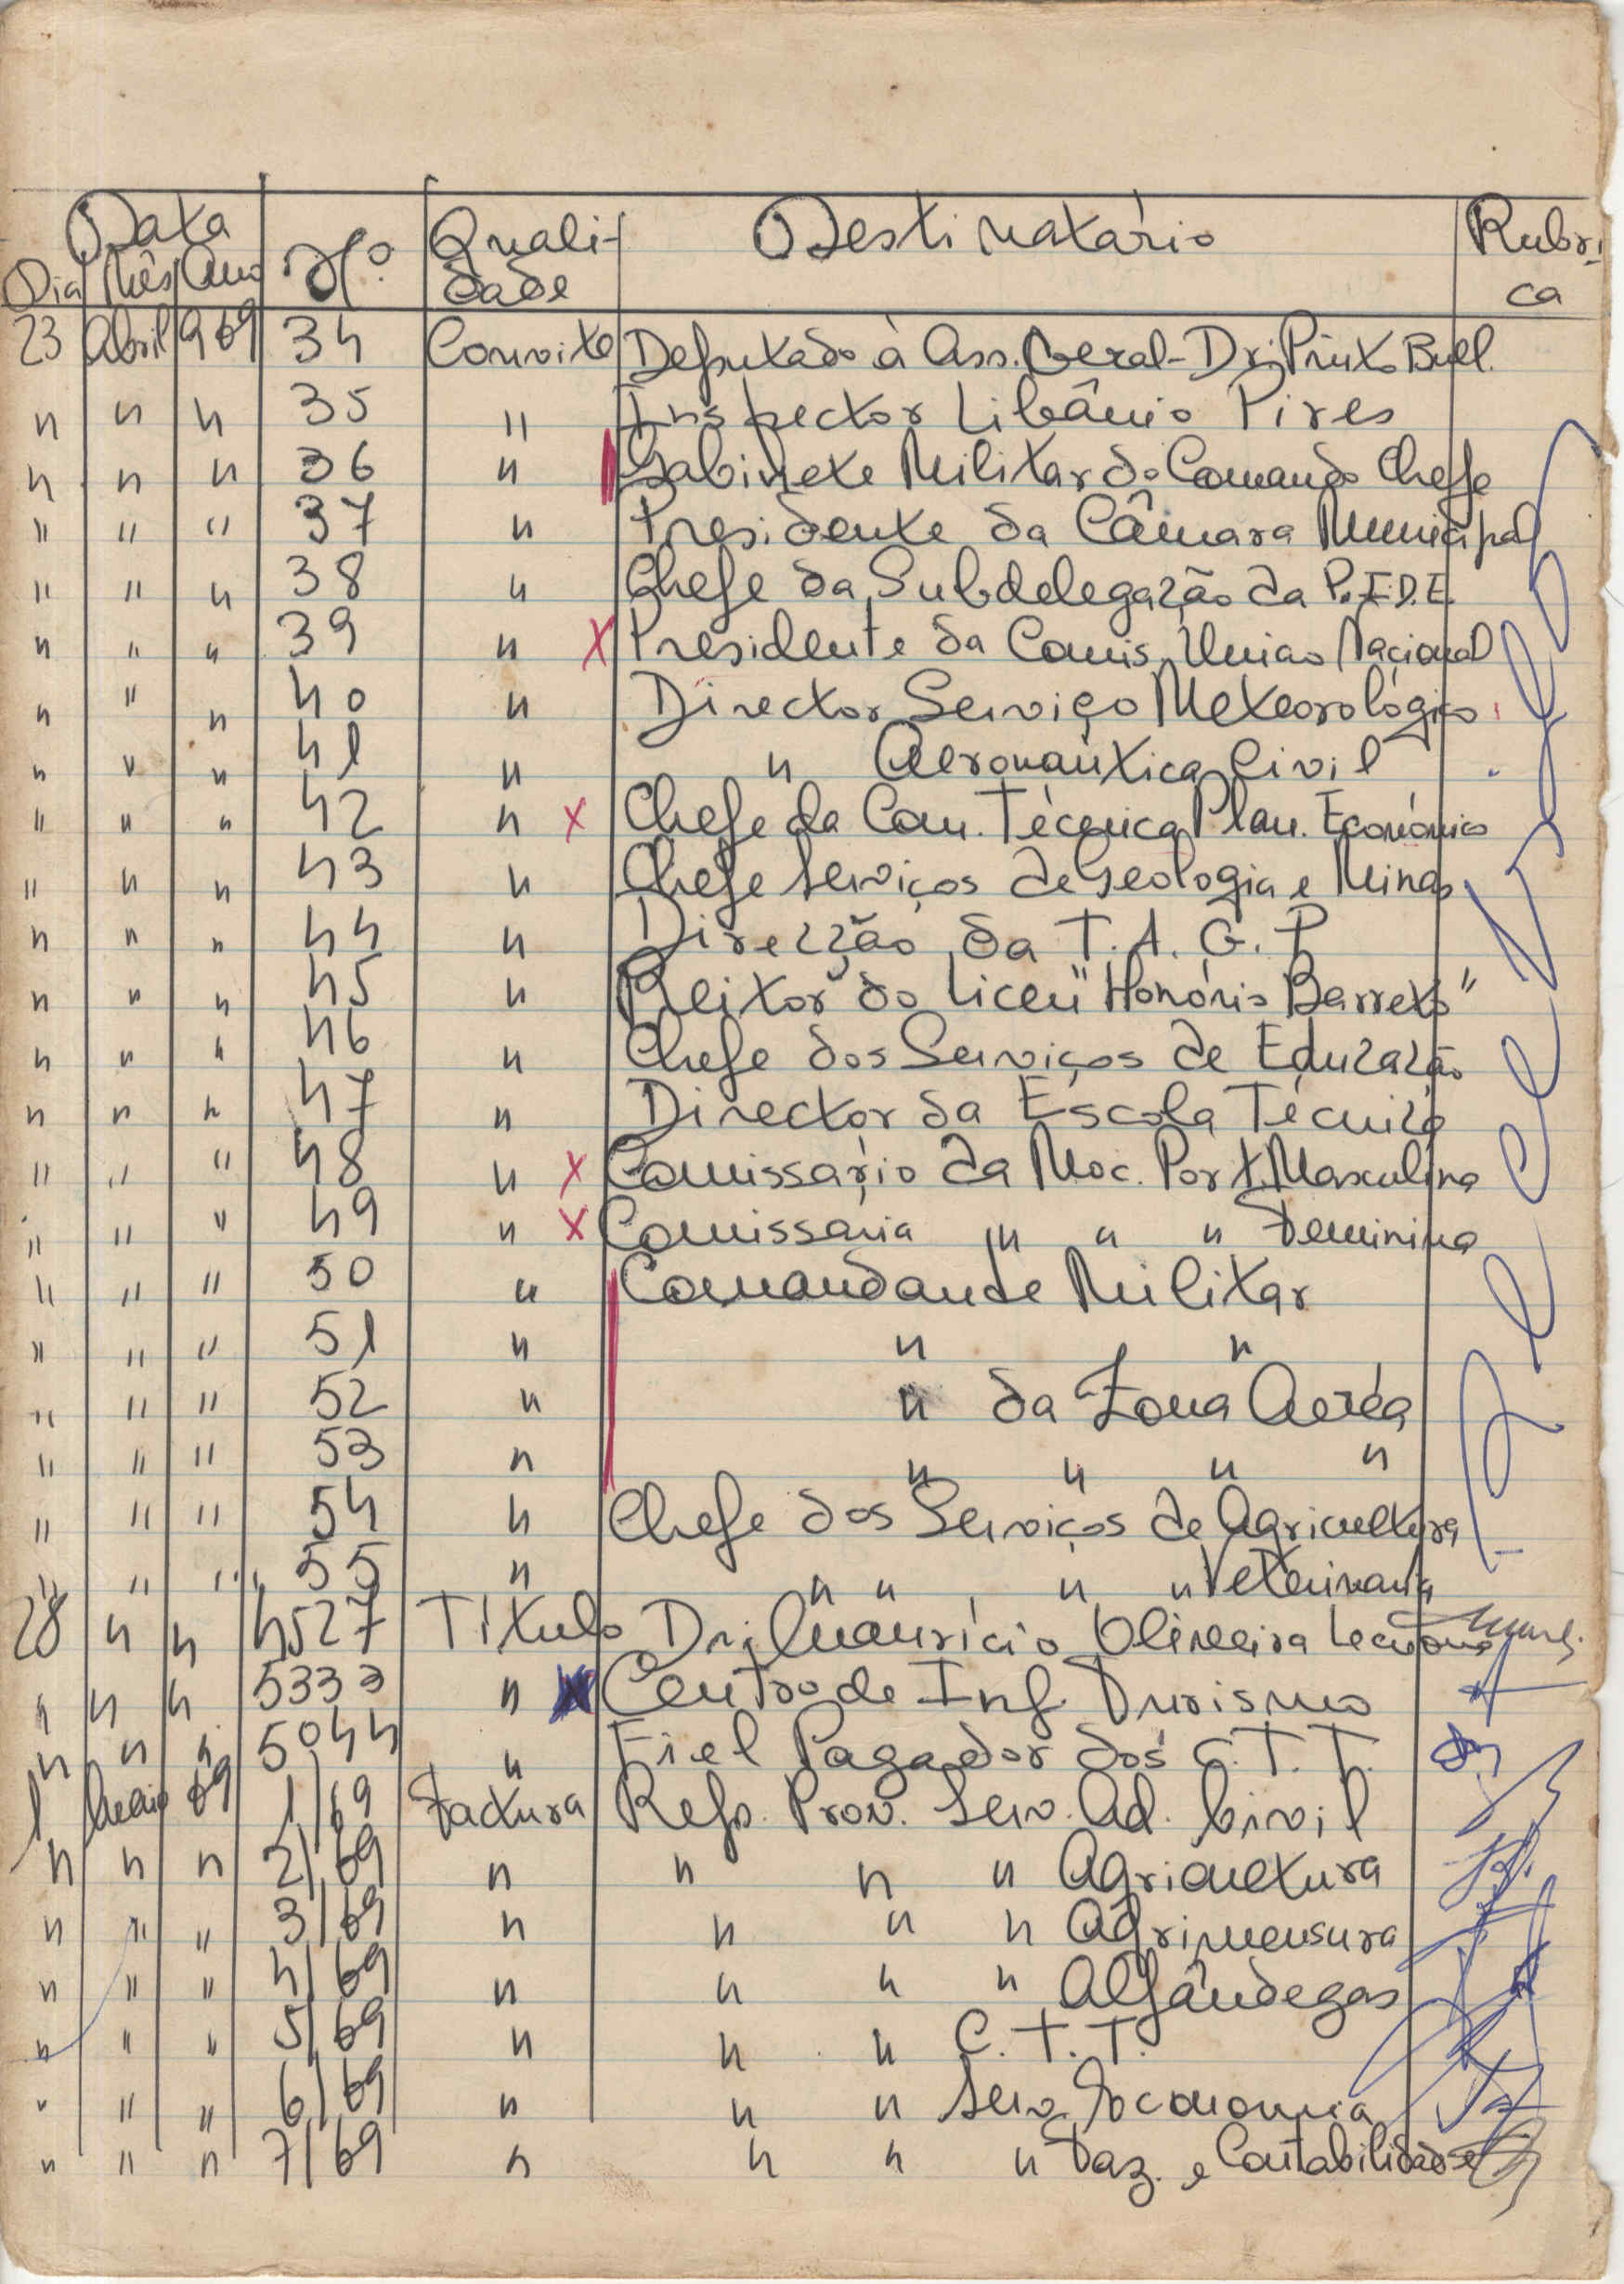 Data Nº Quali- Destinatário Rubri-
Dia Mês Ano dade ca
23 Abril 969 34 Convite Deputado à Ass. Geral - Dr. Pinto Bull.
" " " 35 " Inspector Libânio Pires
" " " 36 " Gabinete Militar do Comando Chefe
" " " 37 " Presidente da Câmara Municipal
" " " 38 " Chefe da Subdelegação da P.I.D.E.
" " " 39 " X Presidente da Comis. União Nacional
" " " 40 " Director Serviço Meteorológico
" " " 41 " " Aeronaútica Civil
" " " 42 " X Chefe da Com. Técnica Plan. Económico
" " " 43 " Chefe Serviços de Geologia e Minas
" " " 44 " Direcção da T.A.G.P
" " " 45 " Reitor do Liceu "Honório Barreto"
" " " 46 " Chefe dos Serviços de Educação
" " " 47 " Director da Escola Técnica
" " " 48 " X Comissário da Moc. Port. Masculina
" " " 49 " X Comissária " " " Feminina
" " " 50 " Comandande Militar
" " " 51 " " "
" " " 52 " " da Zona Aeréa
" " " 53 " " " " "
" " " 54 " Chefe dos Serviços de Agricultura
" " " 55 " " " " " Veterinaria
28 " " 4527 Título Dr. Mauricio Oliveira
" " " 5333 " Centro de Inf. Turismo
" " " 5044 " Fiel Pagador dos C.T.T.
1 Maio 69 1/69 Factura Rep. Prov. Serv. Ad. Civil
" " " 2/69 " " " " Agricultura
" " " 3/69 " " " " Agrimensura
" " " 4/69 " " " " Alfândegas
" " " 5/69 " " " C.T.T.
" " " 6/69 " " " Serv. Economia
" " " 7/69 " " " " Faz. e Contabilidade